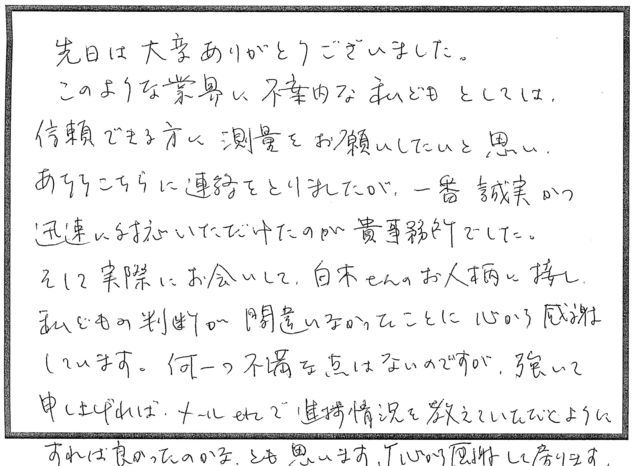 先日は大変ありがとうございました。
このような業界に不案内な私どもとしては、
信頼できる方に測量をお願いしたいと思い、
あちらこちらに連絡をとりましたが、一番誠実かつ
迅速に対応いただけたのが貴事務所でした。
そして実際にお会いして、白木さんのお人柄に接し、
私どもの判断が間違いなかったことに心から感謝
しています。何一つ不満な点はないのですが、強いて
申し上げれば、メールetcで進捗情況を教えていただくように
すれば良かったのかな、とも思います。心から感謝して居ります。